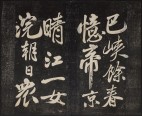 巴峽餘春
憶帝京
晴江一女
浣朝日眾